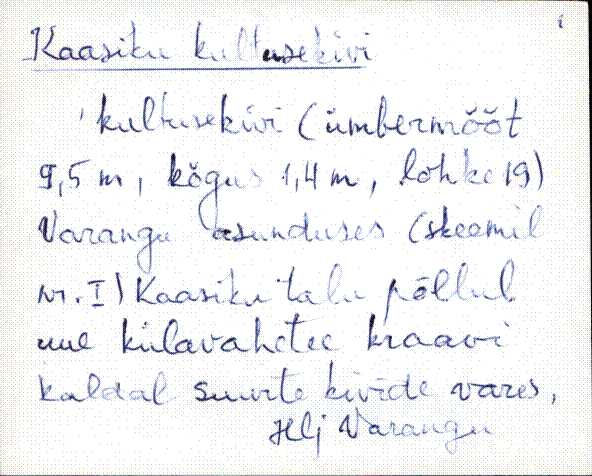 Kaasiku kultusekivi
kultusekivi (ümbermõõt
9,5 m, kõgus 1,4 m, lohke 19)
Varangu asunduses (skeemil
nr. I) Kaasiku talu põllul
uue külavahetee kraavi
kaldal suurte kivide vares,
Hlj Varangu